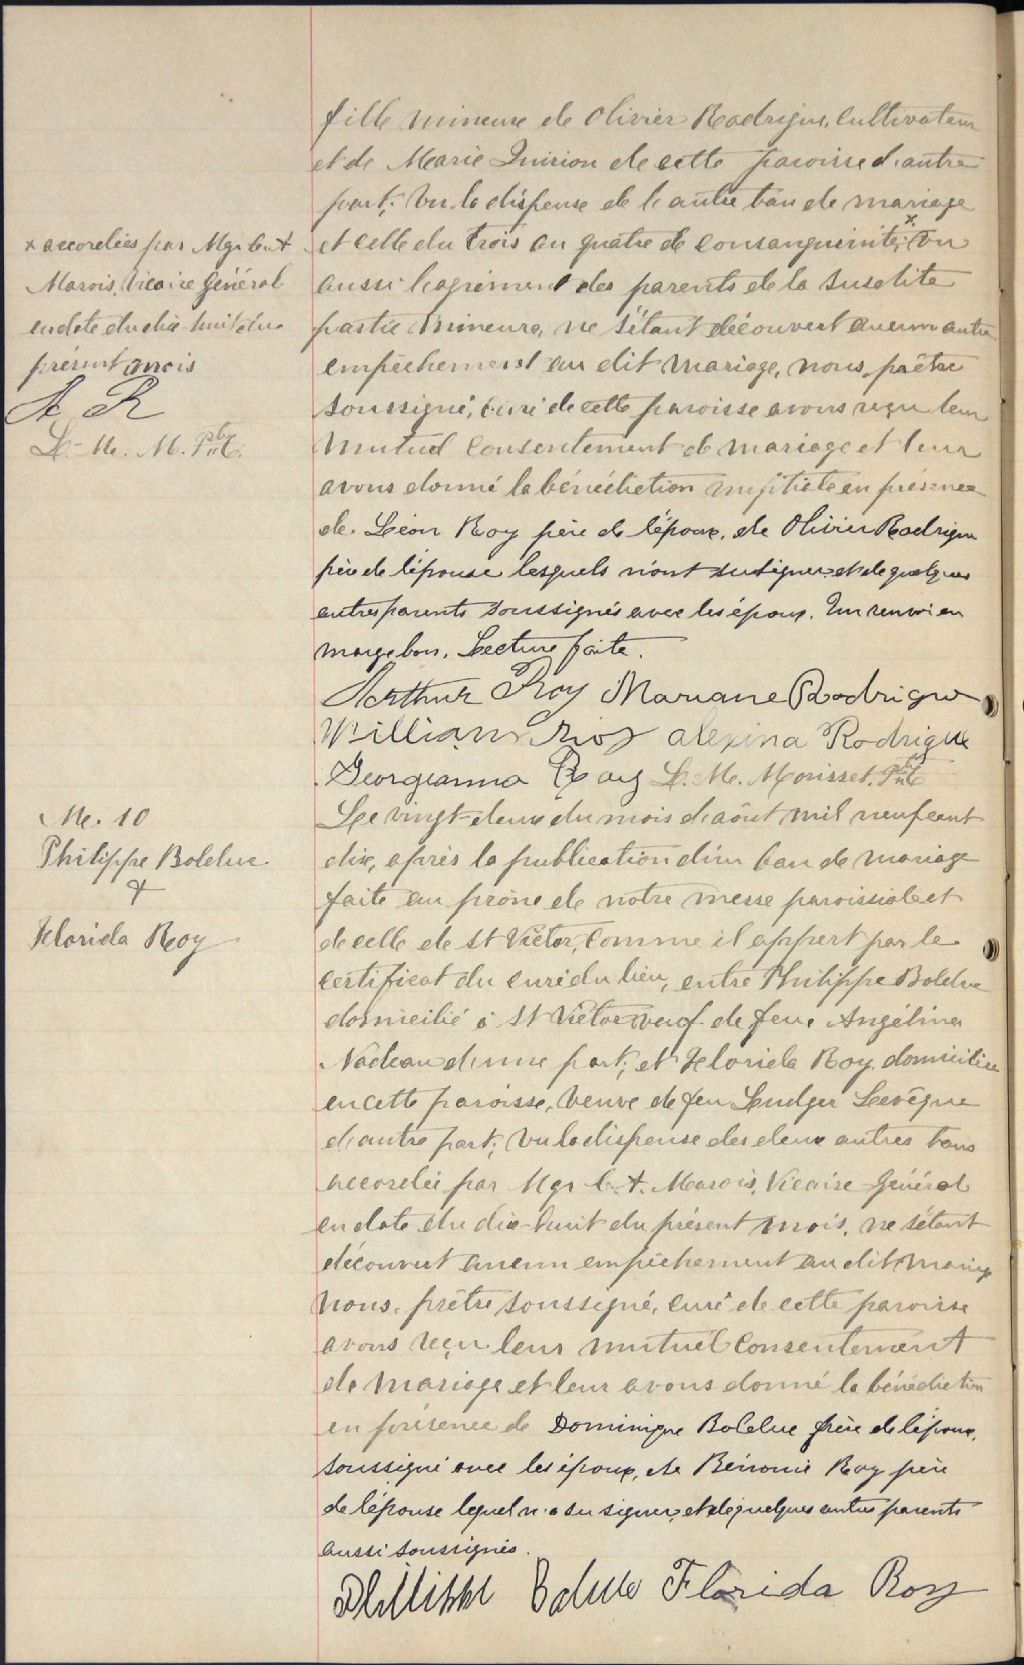 fille mineure de Olivier Rodrigue, Cultivateur
et de Marie Quirion de cette paroisse d'autre
part; vu la dispense de l'autre ban de mariage
x accordées par Mgr C. A.
Marois, Vicaire Général
en date du dix-huit du
présent mois
A R
L.-M. M. Ptre
et celle du trois au quatre de consanguinité, x vu
aussi l'agrément des parents de la susdite
partie mineure, ne s'étant découvert aucun autre
empêchement au dit mariage, nous, prêtre
soussigné, curé de cette paroisse avons reçu leur
mutuel consentement de mariage et leur
avons donné la bénédiction nuptiale en présence
de Léon Roy père de l'époux, de Olivier Rodrigue
père de l'épouse lesquels n'ont su signer et de quelques
autres parents soussignés avec les époux. Un renvoi en
marge bon. Lecture faite.
Arthur Roy Mariane Rodrigue
William Roy alexina Rodrigue
Georgianna Roy L.-M. Morisset, Ptre
M. 10
Philippe Bolduc
&
Florida Roy
Le vingt-deux du mois d'août mil neuf cent
dix, après la publication d'un ban de mariage
faite au prône de notre messe paroissiale et
de celle de St Victor, comme il appert par le
certificat du curé du lieu, entre Philippe Bolduc
domicilié à St Victor, veuf de feue Angélina
Nadeau d'une part; et Florida Roy, domiciliée
en cette paroisse, veuve de feu Ludger Levêque
d'autre part; vu la dispense des deux autres bans
accordée par Mgr C. A. Marois, Vicaire Général
en date du dix-huit du présent mois, ne s'étant
découvert aucun empêchement au dit mariage
nous, prêtre soussigné, curé de cette paroisse
avons reçu leur mutuel consentement
de mariage et leur avons donné la bénédiction
en présence de Dominique Bolduc frère de l'époux,
soussigné avec les époux, de Bénonie Roy père
de l'épouse lequel n'a su signer, et de quelques autres parents
aussi soussignés.
Phillippe Bolduc Florida Roy